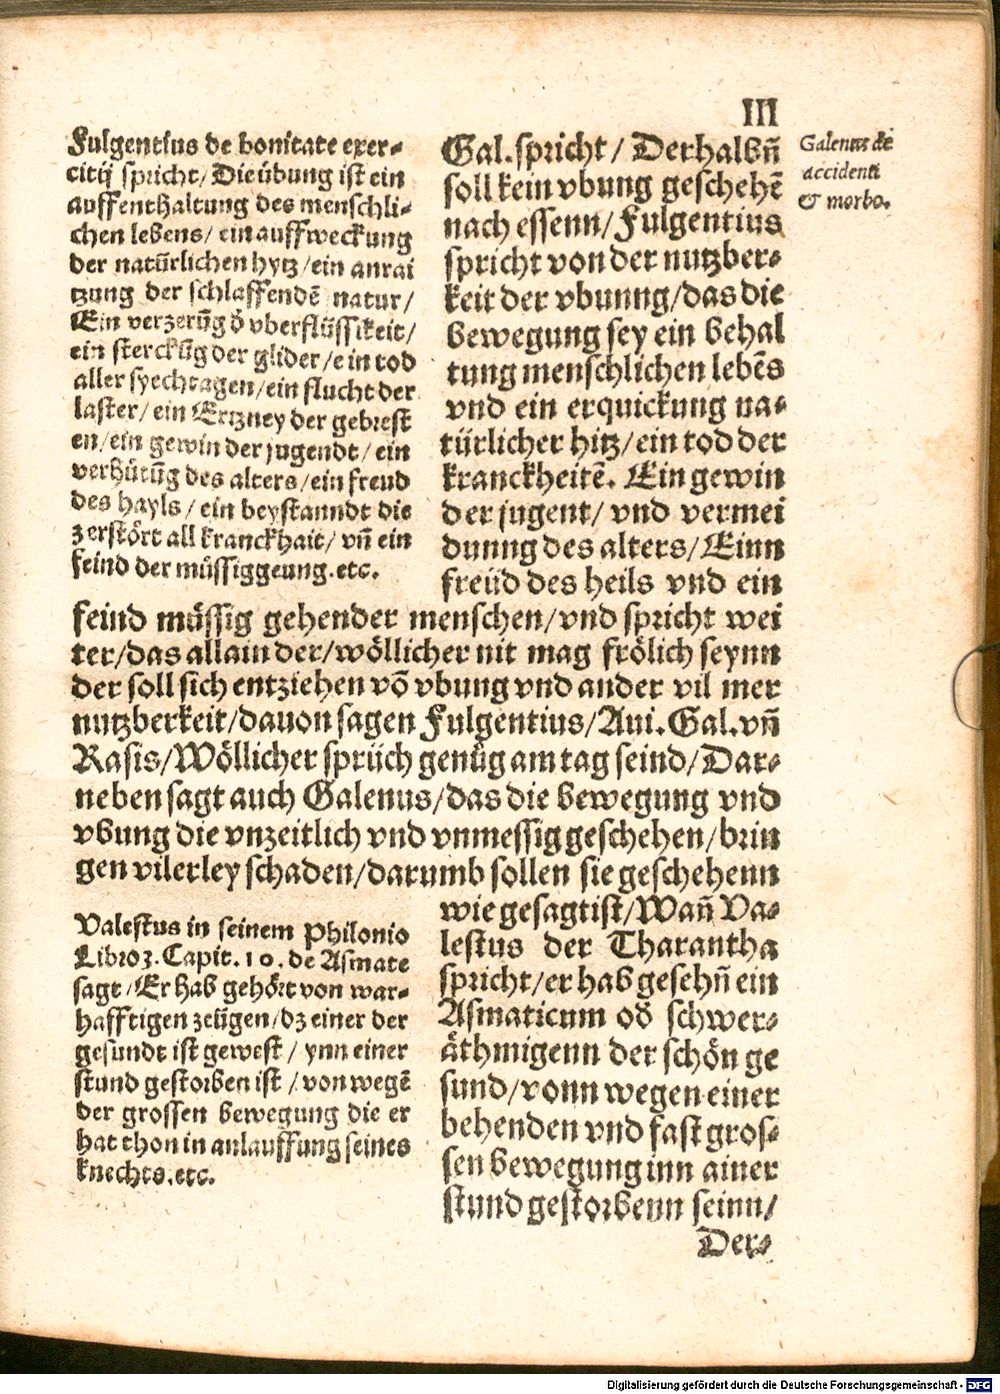 III
Fulgentius de bonitate exer-
citij spricht/ Die übung ist ein
auffenthaltung des menschli-
chen lebens/ ein auffweckung
der natürlichen hytz/ein anrai
tzung der schlaffendē natur/
Ein verzerūg ð vberflüssikeit/
ein sterckūg der glider/ein tod
aller syechtagen/ein flucht der
laster/ ein Ertzney der gebrest
en/ein gewin der jugendt/ ein
verhütūg des alters/ein freud
des hayls/ ein beystanndt die
zerstört all kranckhait/ vñ ein
feind der müssiggeung.etc.
Gal.spricht/ Derhalbñ
soll kein vbung geschehē
nach essenn/ Fulgentius
spricht von der nutzber-
keit der vbunng/das die
bewegung sey ein behal
tung menschlichen lebēs
vnd ein erquickung na-
türlicher hitz/ein tod der
kranckheitē. Ein gewin
der jugent/ vnd vermei
dunng des alters/Einn
freüd des heils vnd ein
Galenus de
accidenti
& morbo.
feind müssig gehender menschen/vnd spricht wei
ter/das allain der/wöllicher nit mag frölich seynn
der soll sich entziehen vō vbung vnd ander vil mer
nutzberkeit/dauon sagen Fulgentius/Aui.Gal.vñ
Rasis/Wöllicher sprüch genůg am tag seind/Dar-
neben sagt auch Galenus/das die bewegung vnd
vbung die vnzeitlich vnd vnmessig geschehen/brin
gen vilerley schaden/darumb sollen sie geschehenn
Valestus in seinem Philonio
Libro 3. Capit. 10. de Asmate
sagt/Er hab gehört von war-
hafftigen zeügen/dz einer der
gesundt ist gewest/ ynn einer
stund gestorben ist/von wegē
der grossen bewegung die er
hat thon in anlauffung seines
knechts.etc.
wie gesagt ist/Wañ Va-
lestus der Tharantha
spricht/er hab gesehñ ein
Asmaticum oð schwer-
äthmigenn der schön ge
sund/vonn wegen einer
behenden vnd fast gros-
sen bewegung inn ainer
stund gestorbenn seinn/
Der-
Digitalisierung gefördert durch die Deutsche Forschungsgemeinschaft - DFG